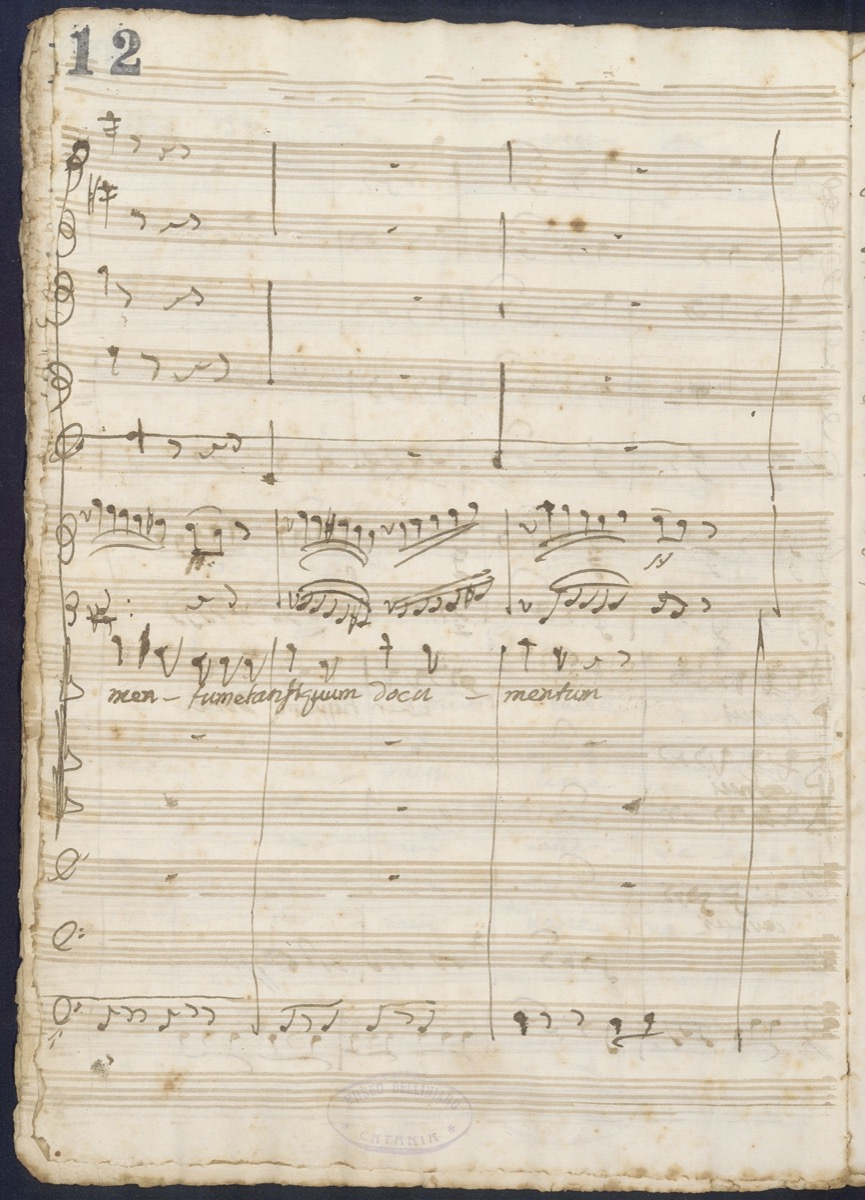 12
men - tum et antiquum docu - mentum
MUSEO BELLINIANO
CATANIA